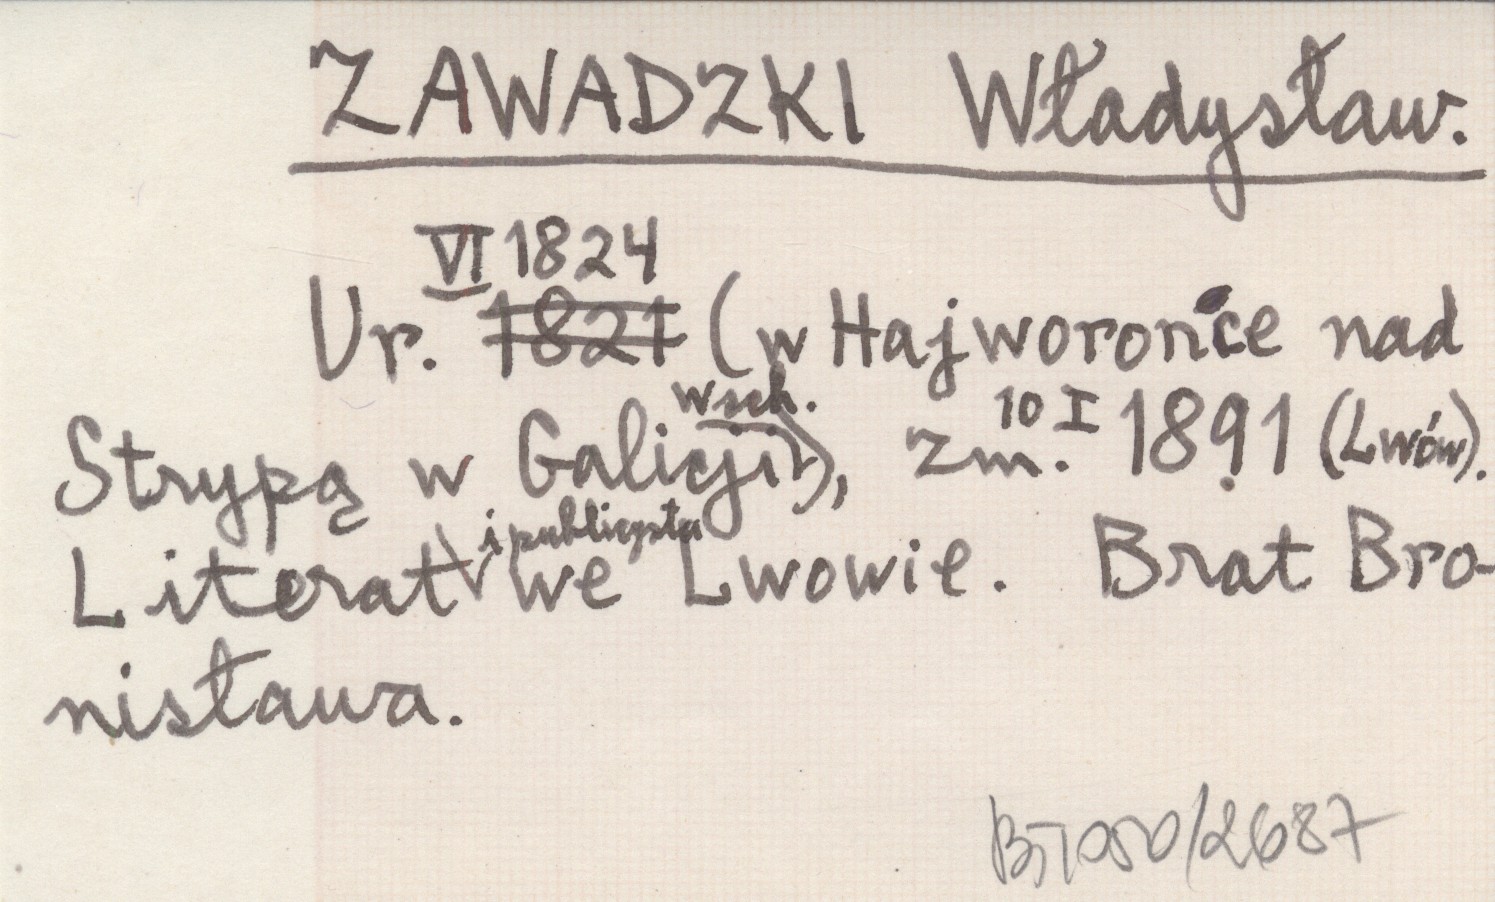 ZAWADZKI Władysław.
VI 1824
Ur. 1821 (w Hajworonce nad
wsch.
Strypą w Galicji), zm. 10 I 1891 (Lwów).
i publicysta
Literat we Lwowie. Brat Bro-
nisława.
/2687